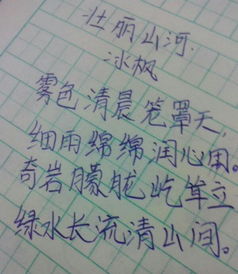 壮丽山河.
冰枫
雾色清晨笼罩天,
细雨绵绵润心田。
奇岩朦胧屹耸立
绿水长流清山间。